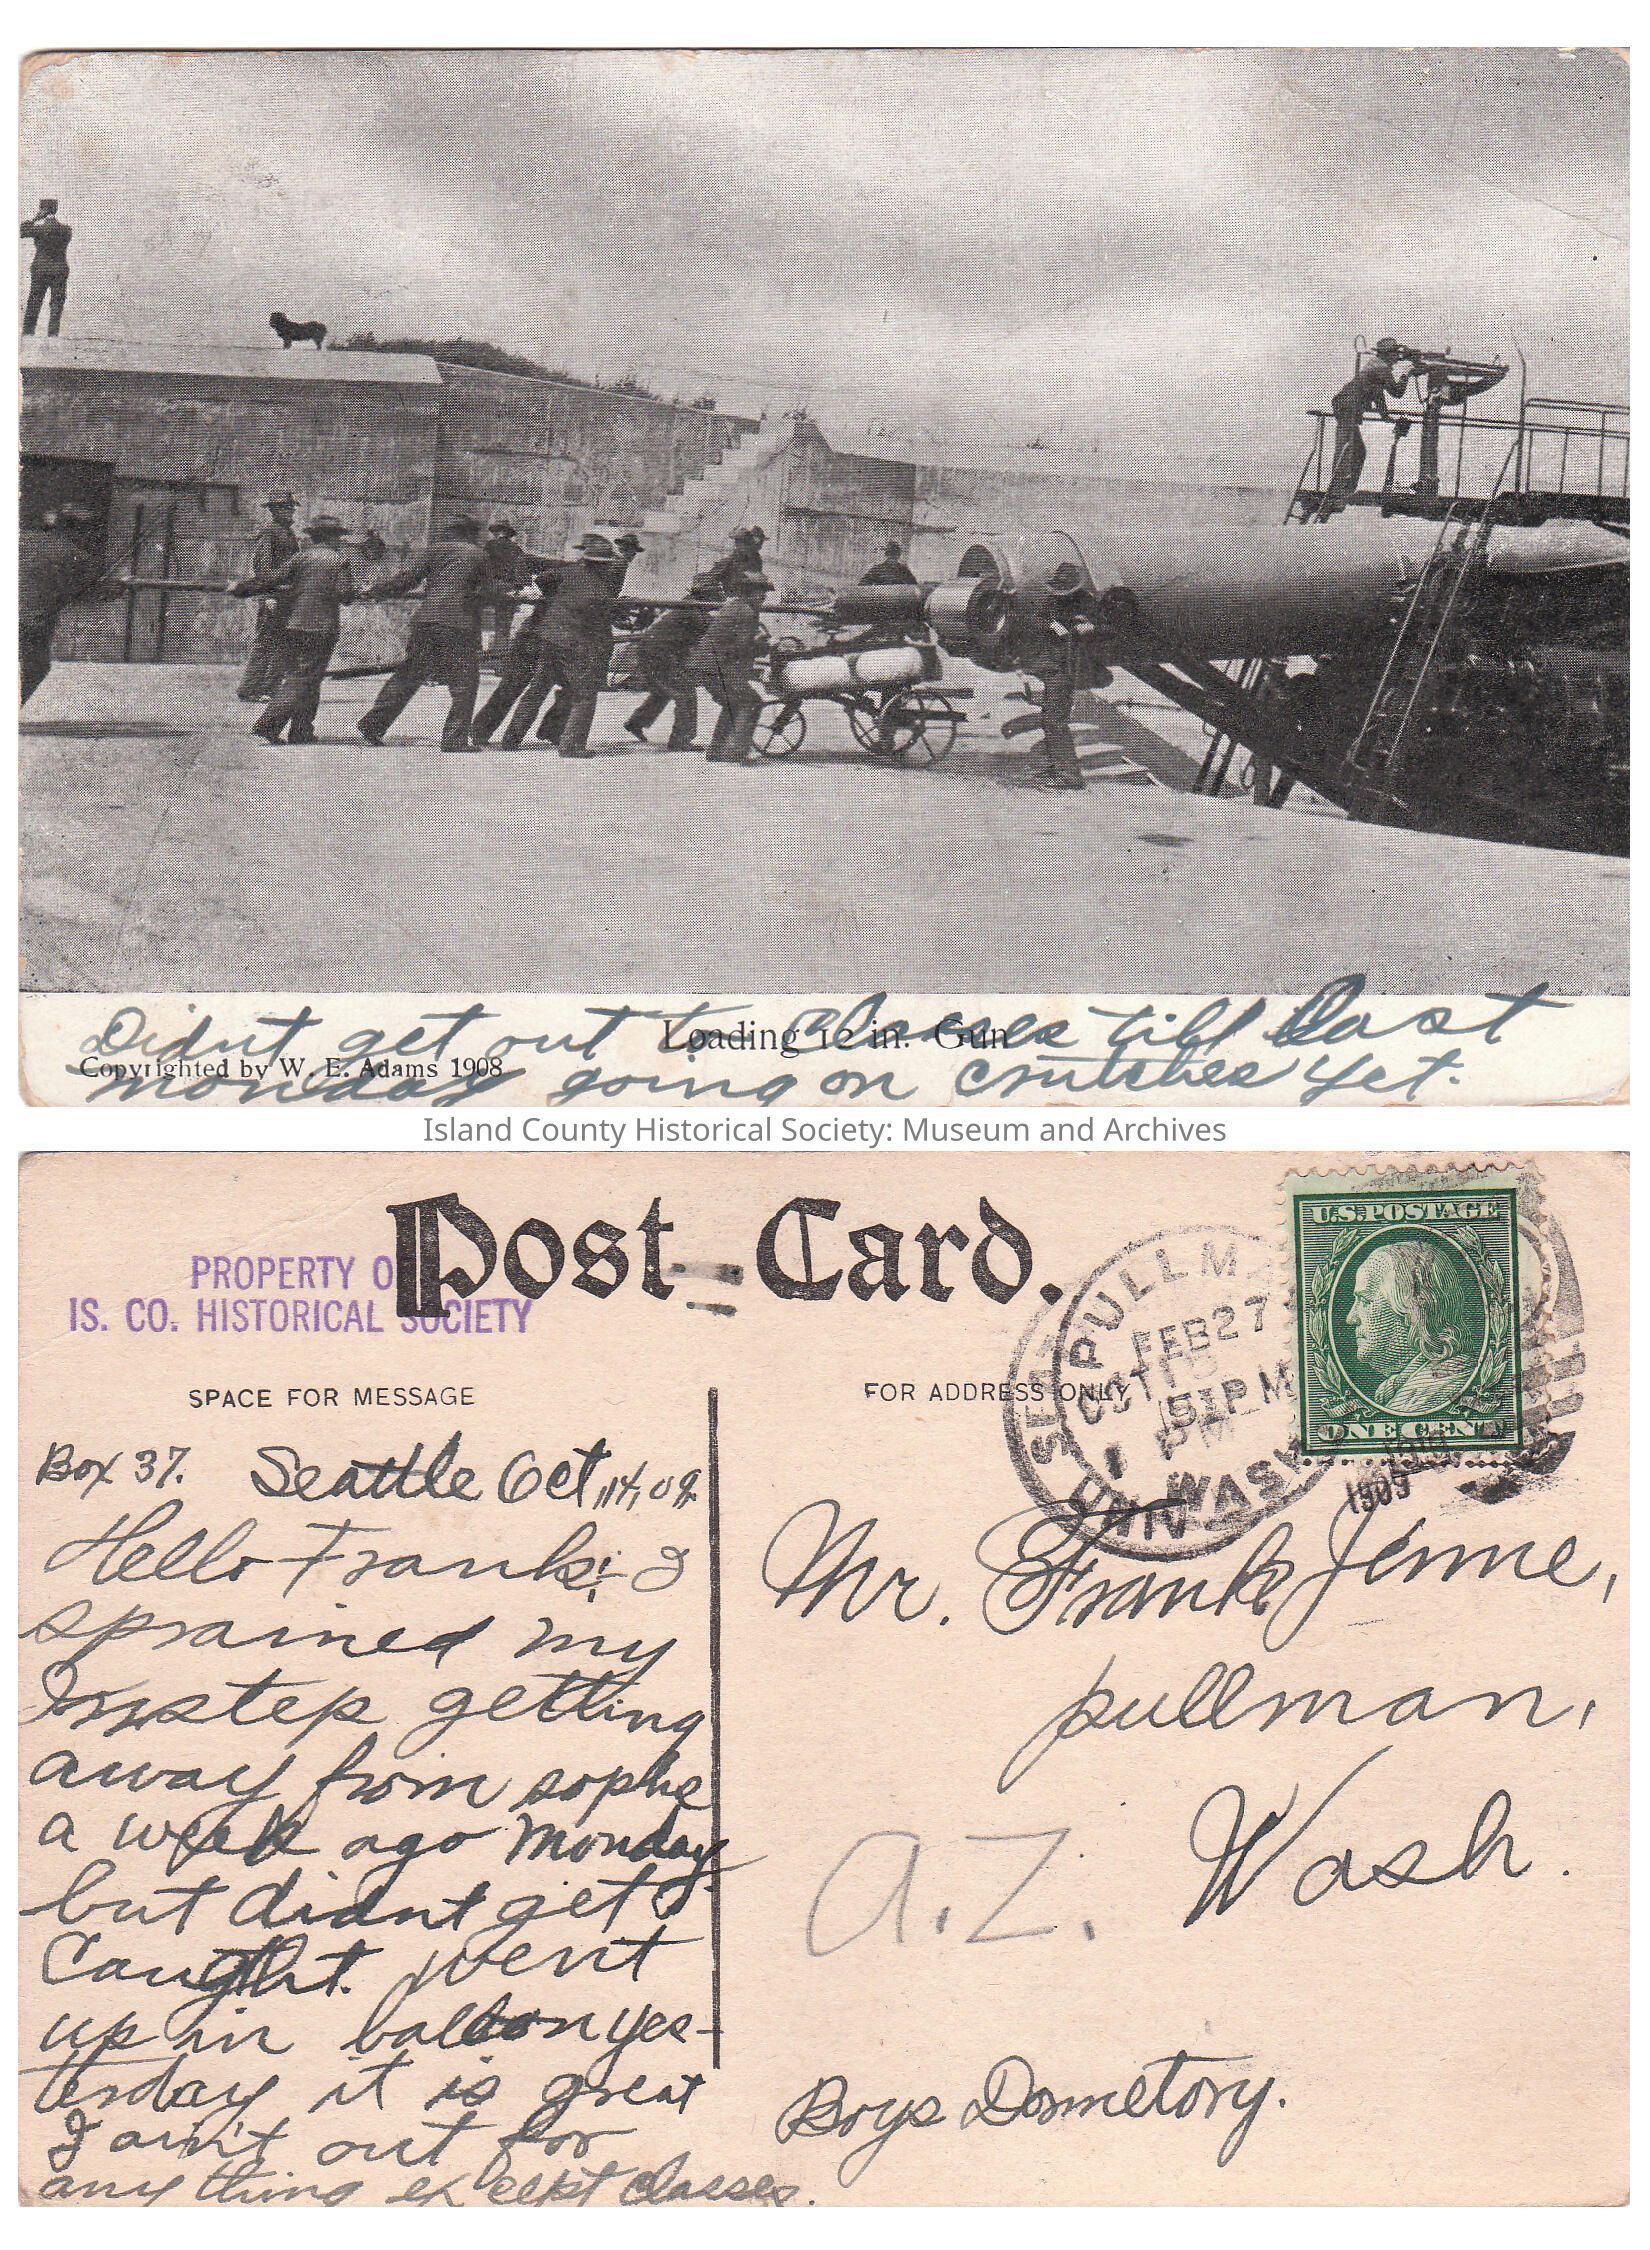 Didnt get out to classes till last
Loading 12 in. Gun
Copyrighted by W. E. Adams 1908
monday going on crutches yet.
Island County Historical Society: Museum and Archives
Post Card.
PROPERTY O
IS. CO. HISTORICAL SOCIETY
SPACE FOR MESSAGE
FOR ADDRESS ONLY
U.S. POSTAGE
ONE CENT
PULLM
FEB 27
OCT
PM
WASH
1909
Box 37. Seattle Oct, 14, 09.
Hello Frank; I
sprained my
Instep getting
away from sophs
a week ago Monday
but didnt get
Caught. went
up in balloon yes-
terday it is great
I ain't out for
any thing except classes.
Mr. Frank Jenne,
pullman,
Wash.
a.Z.
Boys Dormetory.